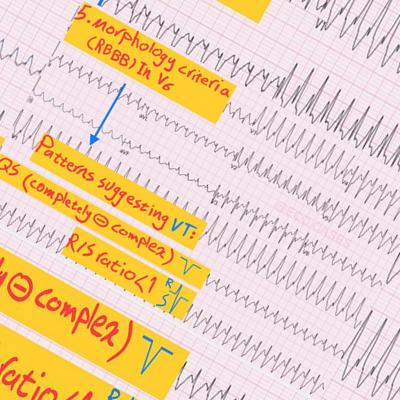 5. morphology criteria
(RBBB) In V6
Patterns suggesting VT:
QS (completely ⊖ complex)
R/S ratio<1 R
S
y ⊖ complex)
ratio